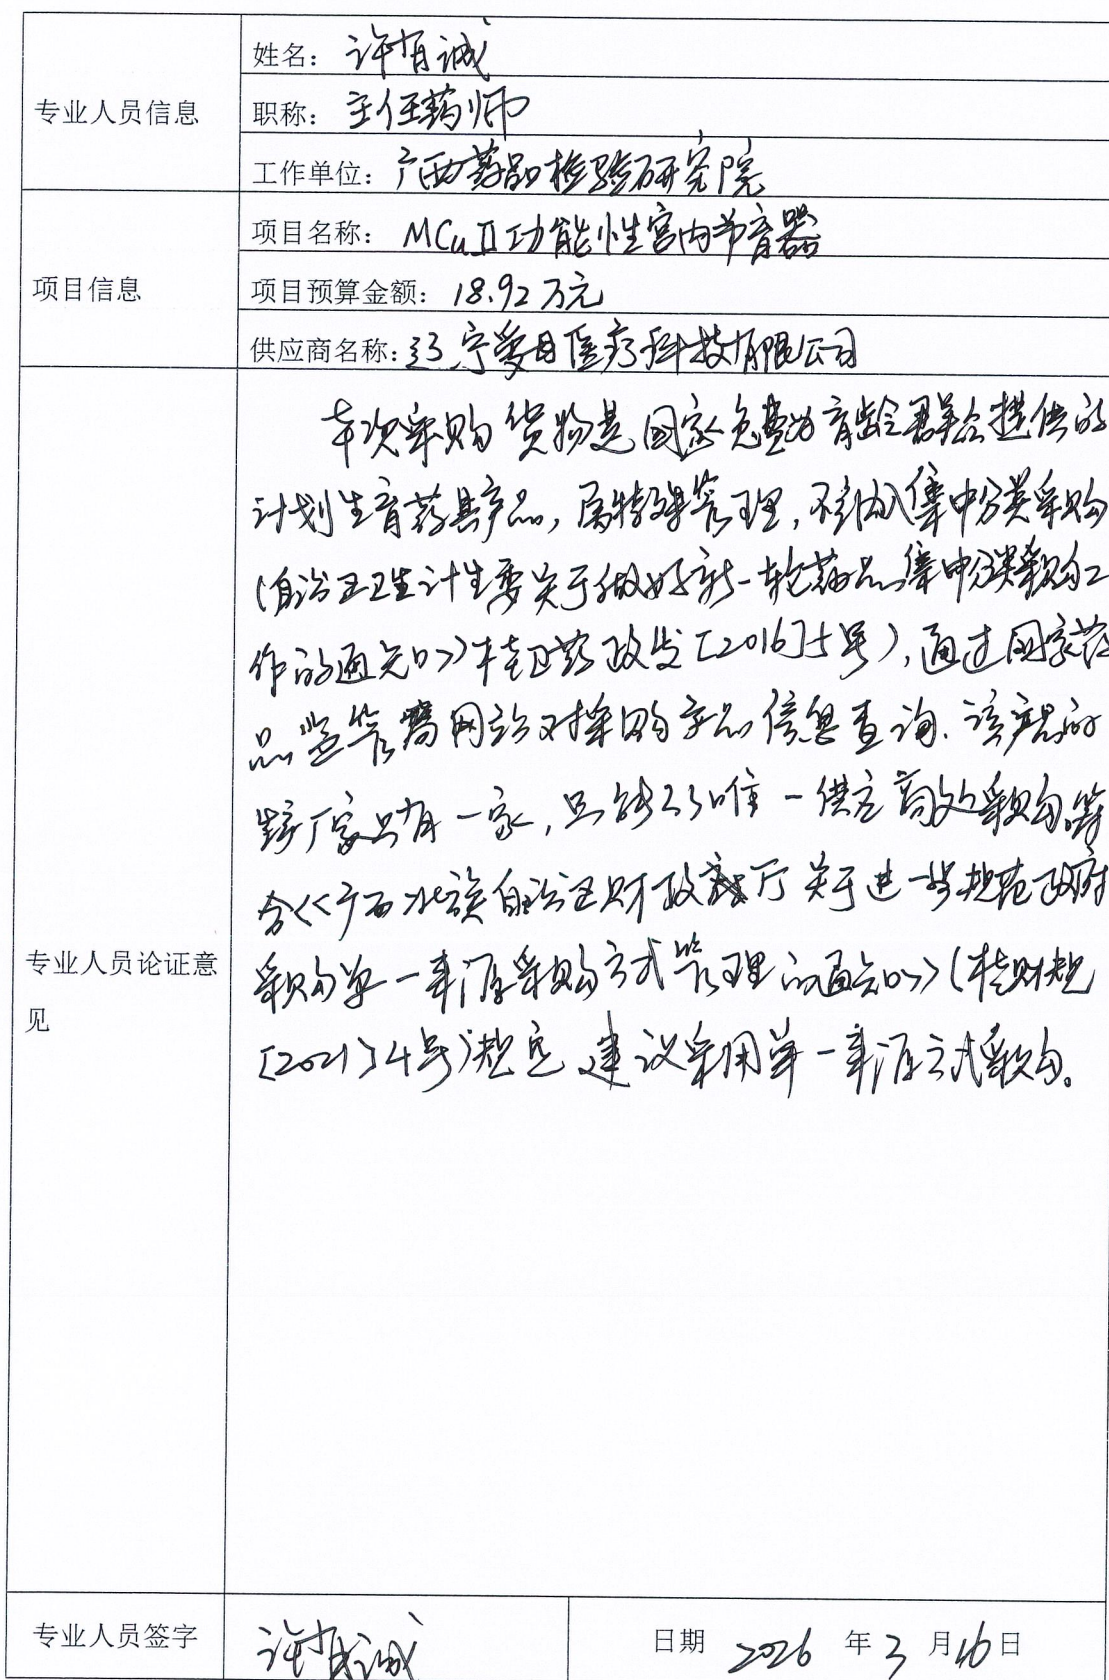 专业人员信息
姓名：许有诚
职称：主任药师
工作单位：广西药品检验研究院
项目信息
项目名称：MCuⅡ功能性宫内节育器
项目预算金额：18.92万元
供应商名称：辽宁爱母医疗科技有限公司
专业人员论证意
见
本次采购货物是国家免费为育龄群众提供的
计划生育药具产品，属特殊管理，不纳入集中分类采购
（自治区卫生计生委关于做好新一轮药品集中分类采购工
作的通知》桂卫药政发［2016］5号），通过国家药
品监管局网站对采购产品信息查询，该产品的
生产厂家只有一家，只能从唯一供应商处采购，符
合《广西壮族自治区财政厅关于进一步规范政府
采购单一来源采购方式管理的通知》（桂财规
〔2021〕4号）规定，建议采用单一来源方式采购。
专业人员签字
许有诚
日期 2026 年 3 月 16 日